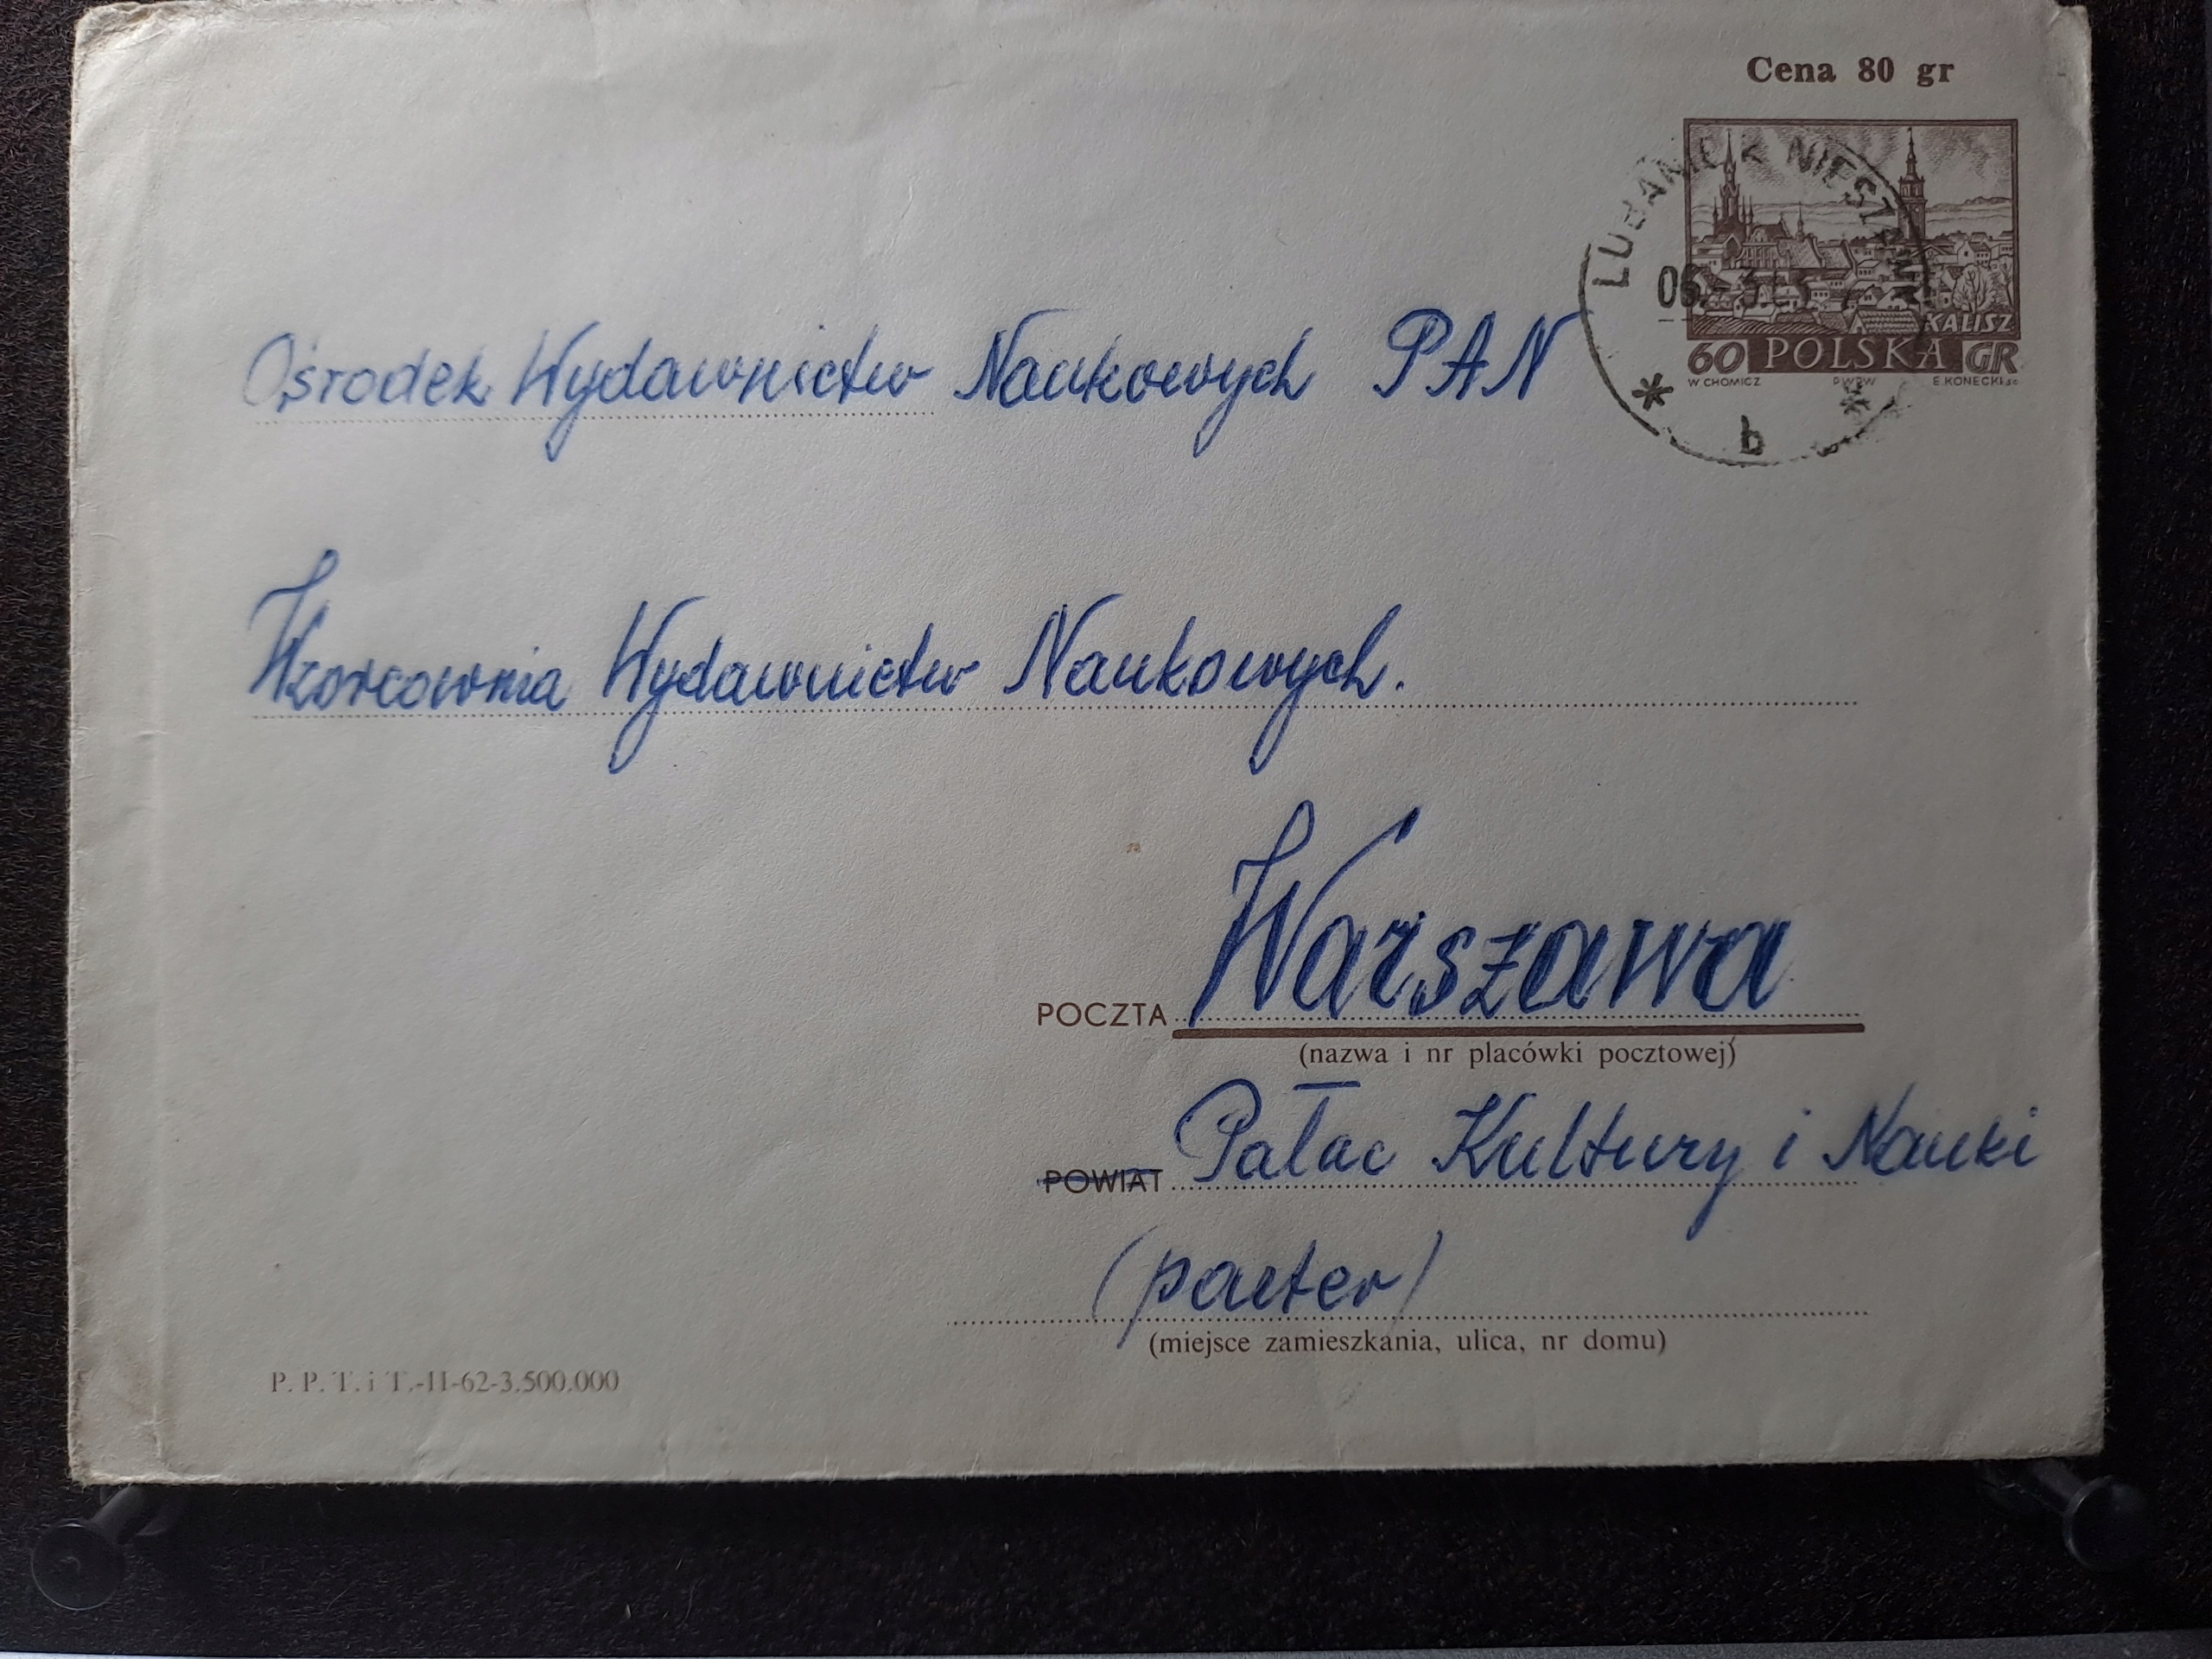 Cena 80 gr
KALISZ
60 POLSKA GR
W.CHOMICZ PWPW E.KONECKI sc.
b
Ośrodek Wydawnictw Naukowych PAN
Wzorcownia Wydawnictw Naukowych.
POCZTA Warszawa
(nazwa i nr placówki pocztowej)
POWIAT Pałac Kultury i Nauki
(parter)
(miejsce zamieszkania, ulica, nr domu)
P. P. T. i T.-II-62-3.500.000